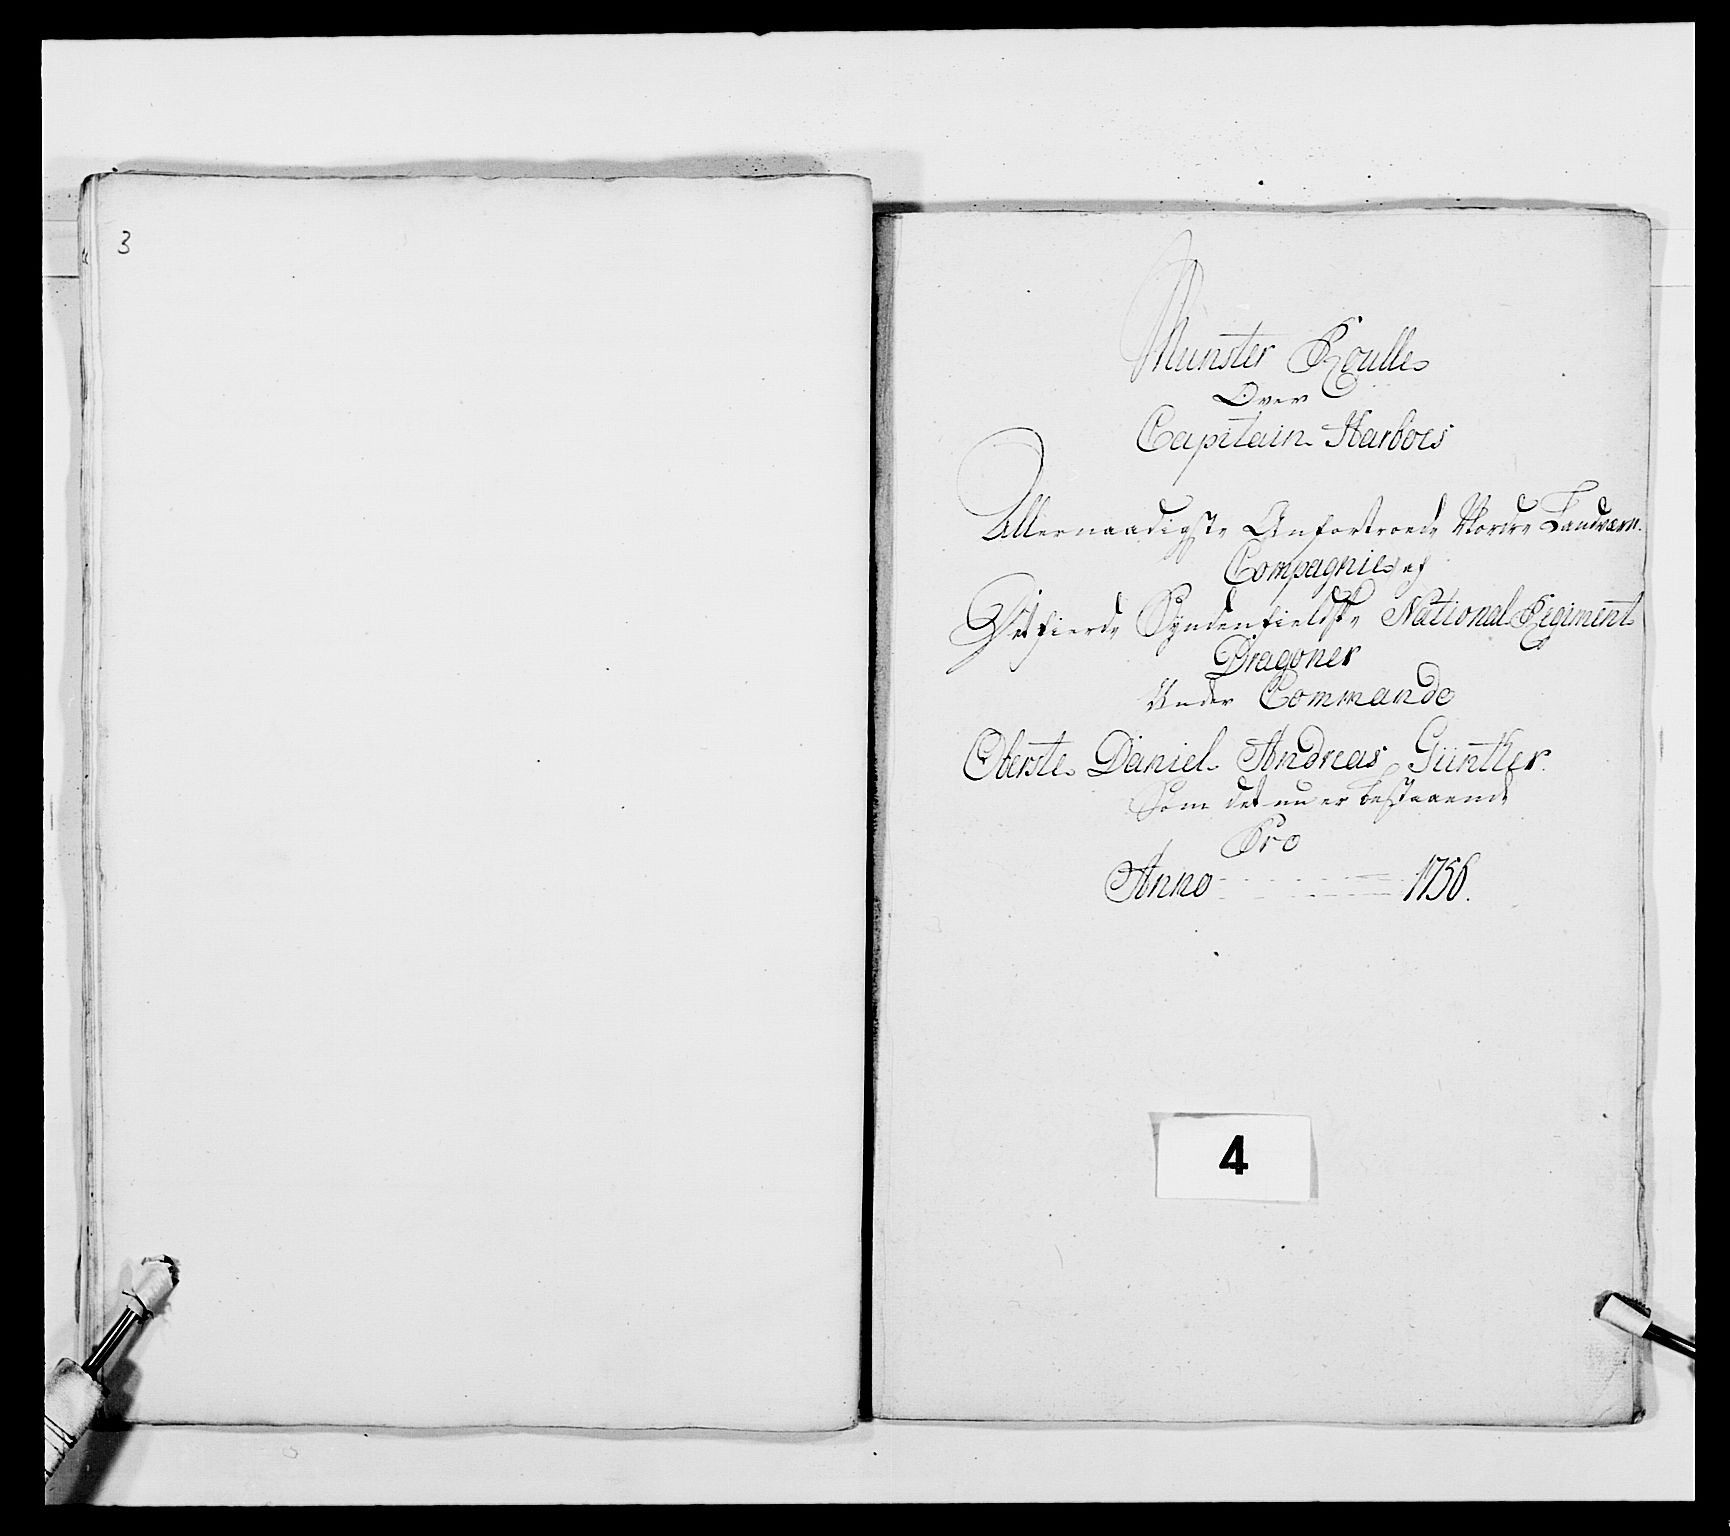 3
Munster Roulle
Over
Capitain Harboes
Allernaadigste Anfortroede Nordre Landværn
Compagnie af
Det fierde Syndenfieldske National Regiment
Dragoner
Under Commando
Oberste Daniel Andreas Günther
Som det nu er bestaaende
Pro
Anno 1756.
4